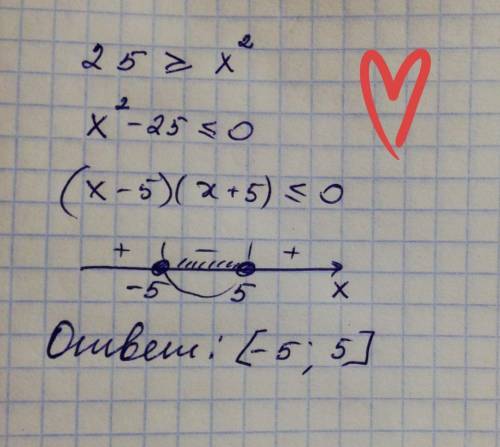 25 ≥ x²
x² - 25 ≤ 0
(x - 5)(x + 5) ≤ 0
+ - +
-5 5 x
Ответ: [-5; 5]